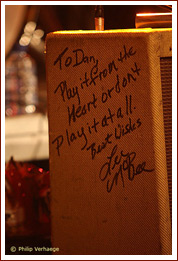 To Dan,
Play it from the
Heart or don't
Play it at all.
Best Wishes
Les
© Philip Verhaege